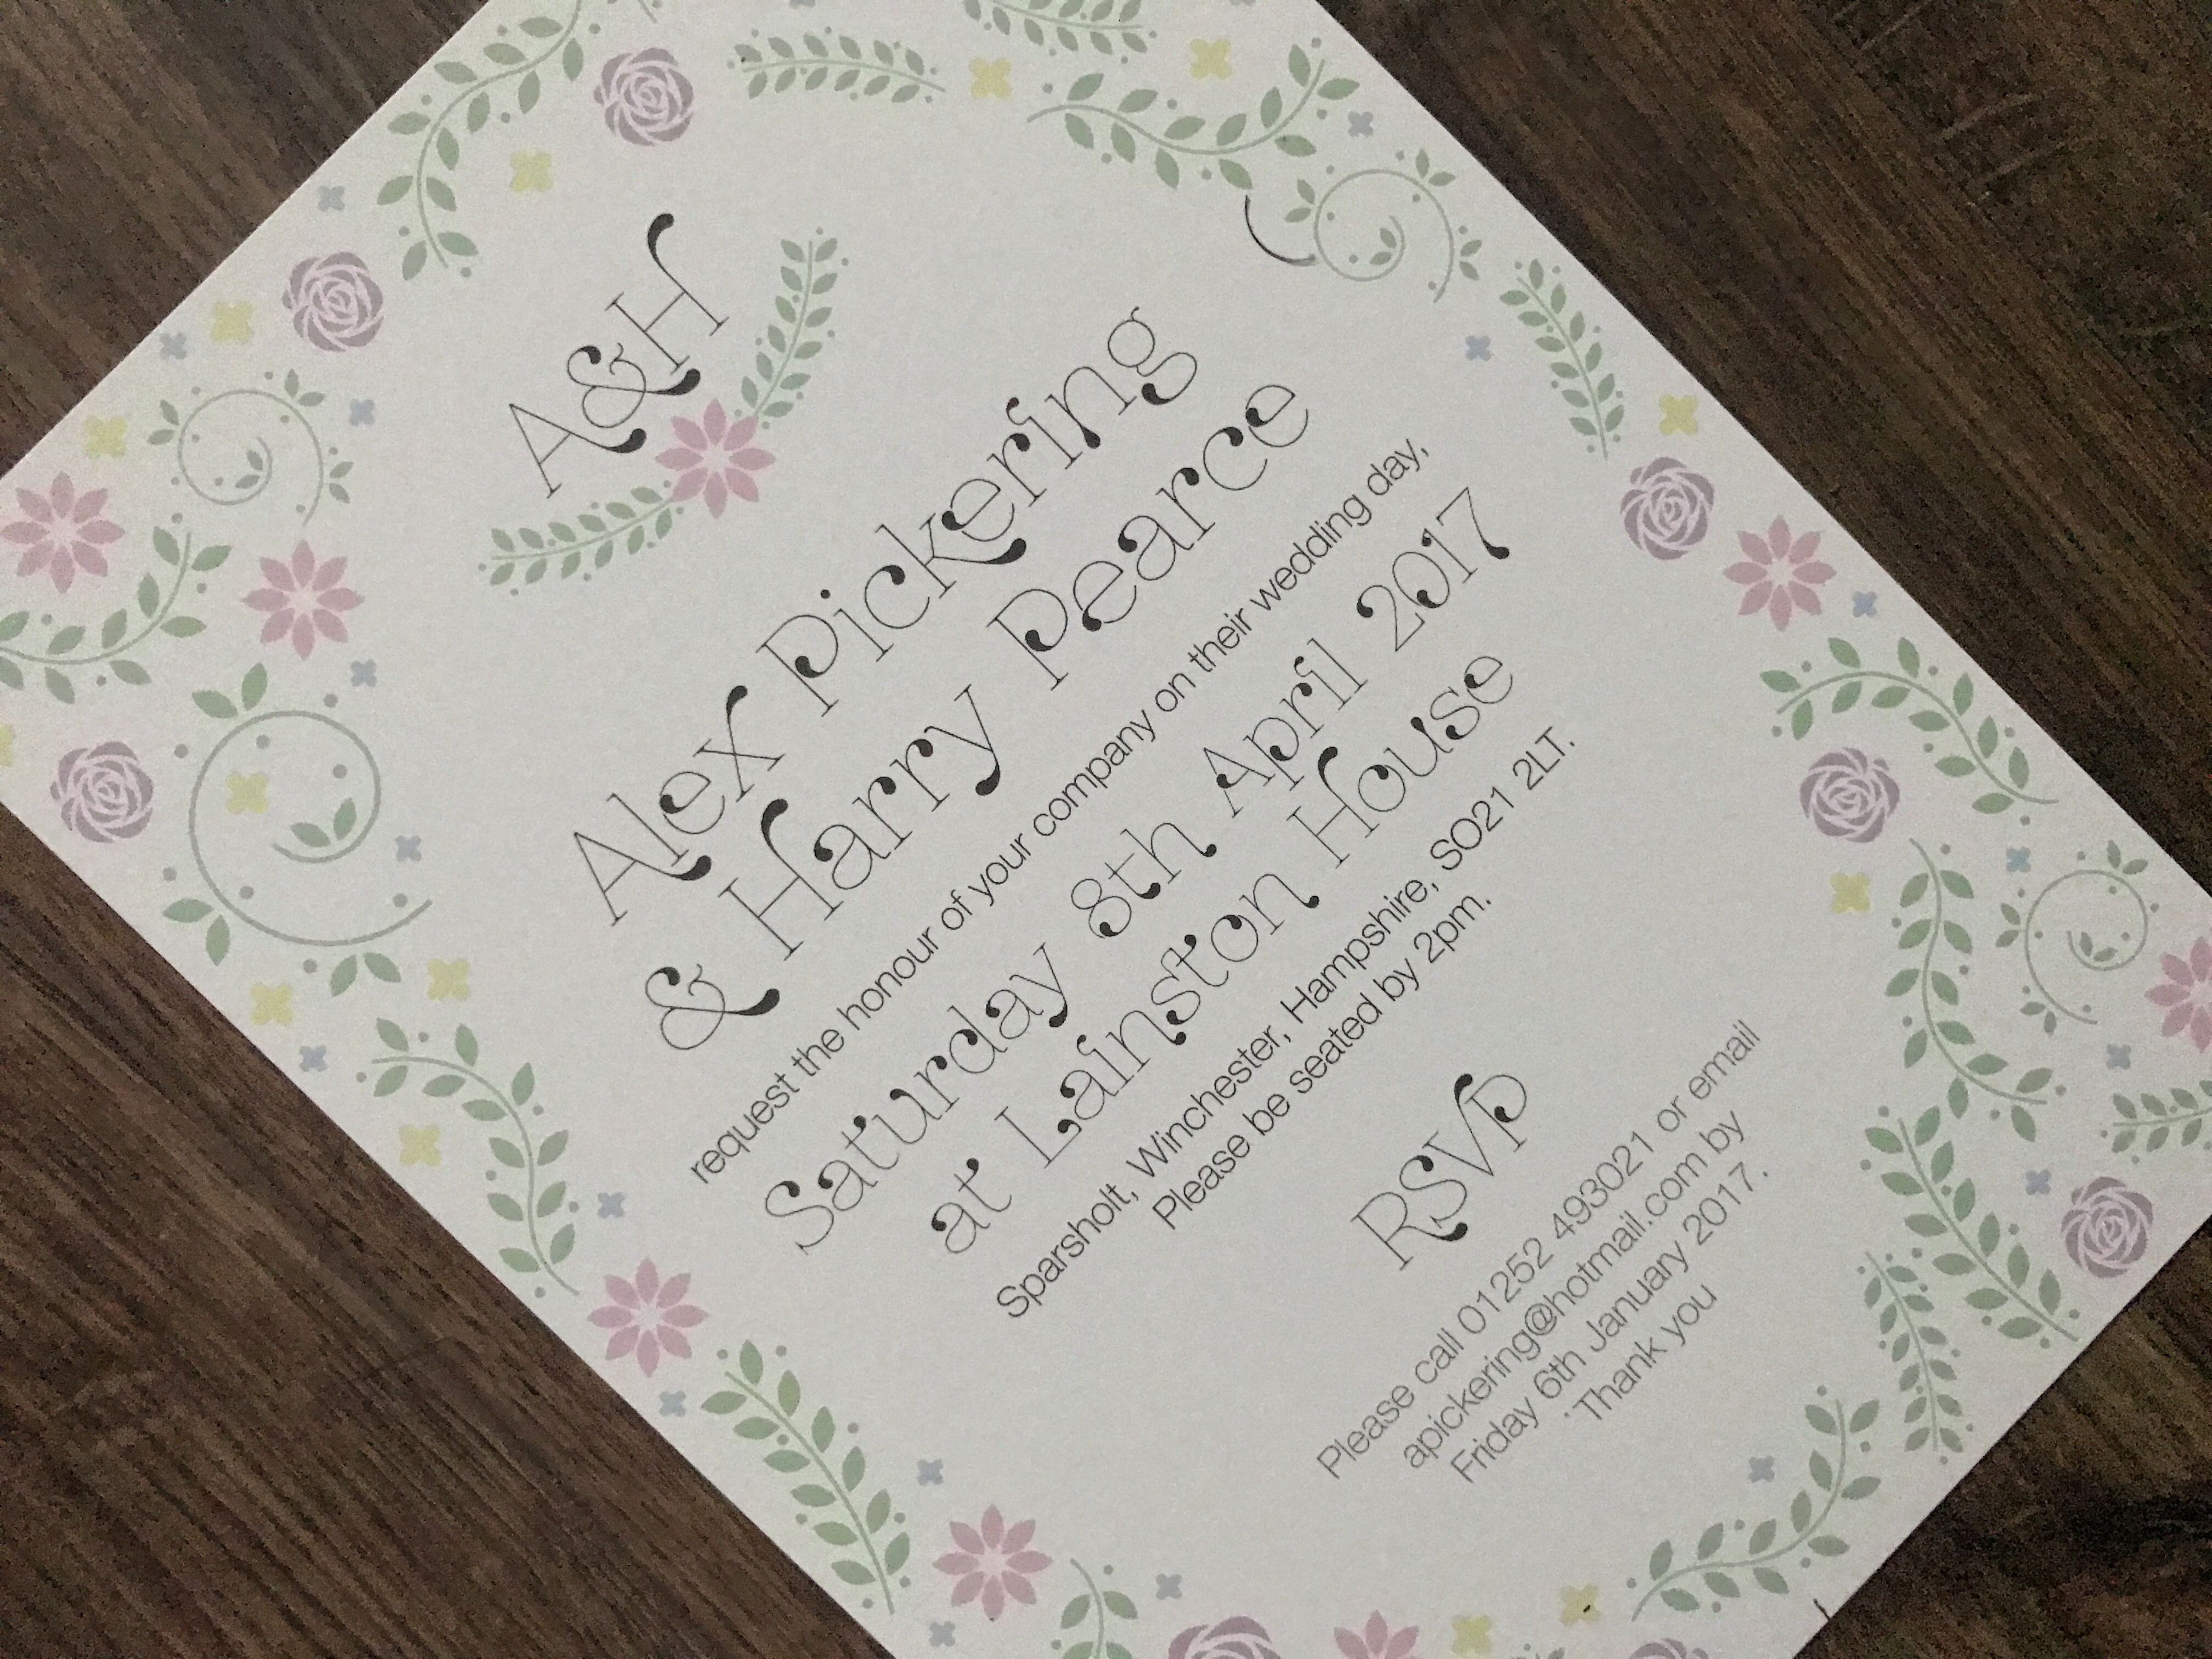 A&H
Alex Pickering
& Harry Pearce
request the honour of your company on their wedding day,
Saturday 8th April 2017
at Lainston House
Sparsholt, Winchester, Hampshire, SO21 2LT.
Please be seated by 2pm.
RSVP
Please call 01252 493021 or email
apickering@hotmail.com by
Friday 6th January 2017.
Thank you